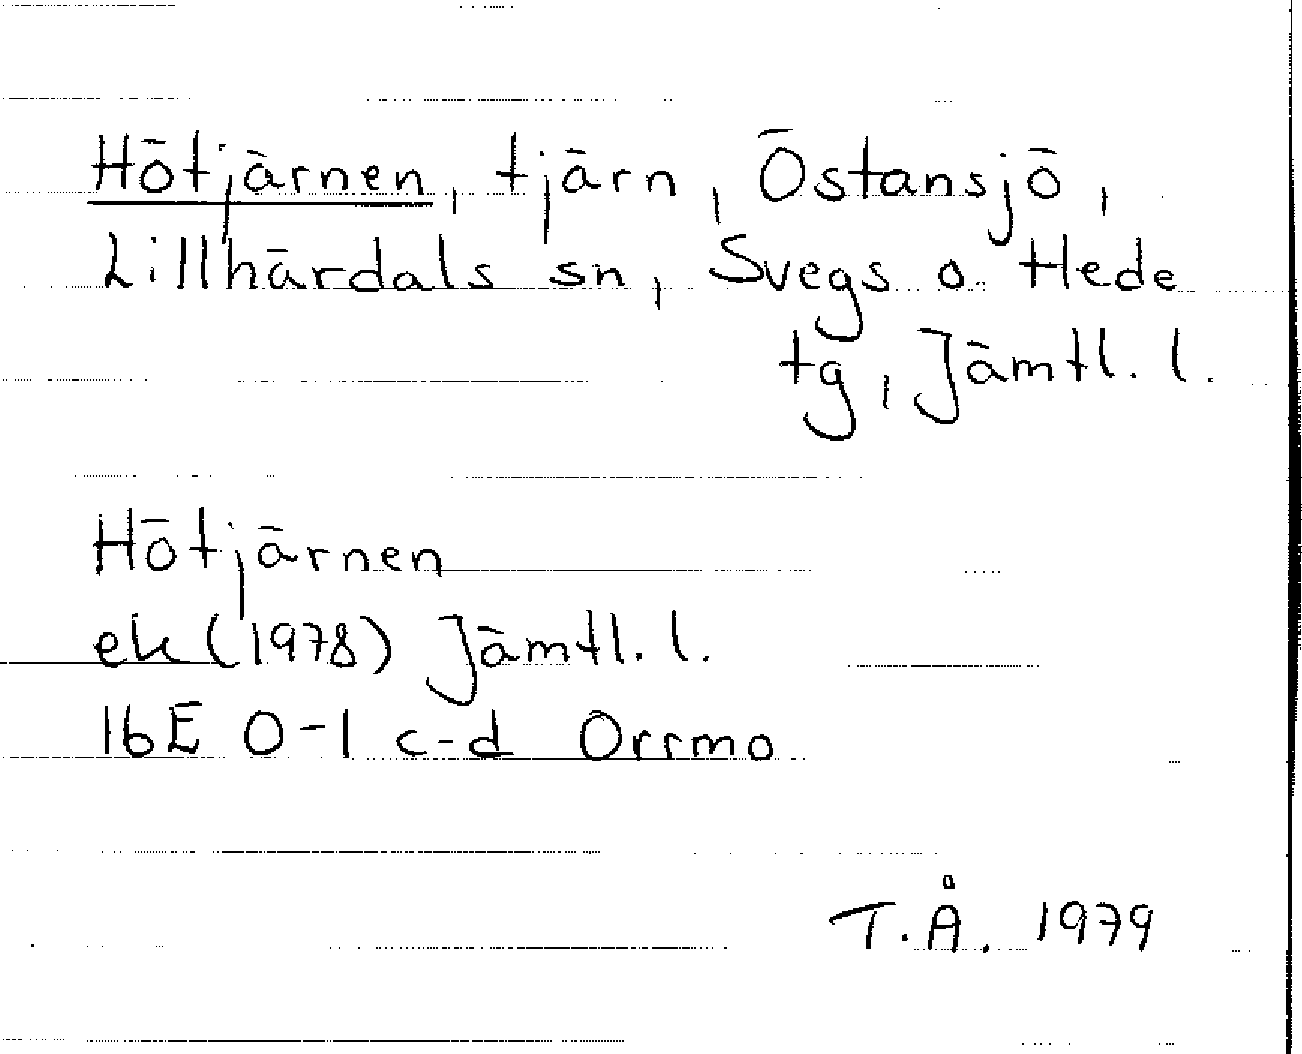 Hötjärnen, tjärn, Östansjö,
Lillhärdals sn, Svegs o Hede
tg, Jämtl. l.
Hötjärnen
ek (1978) Jämtl. l.
16E 0-1 c-d Orrmo
T.Å. 1979